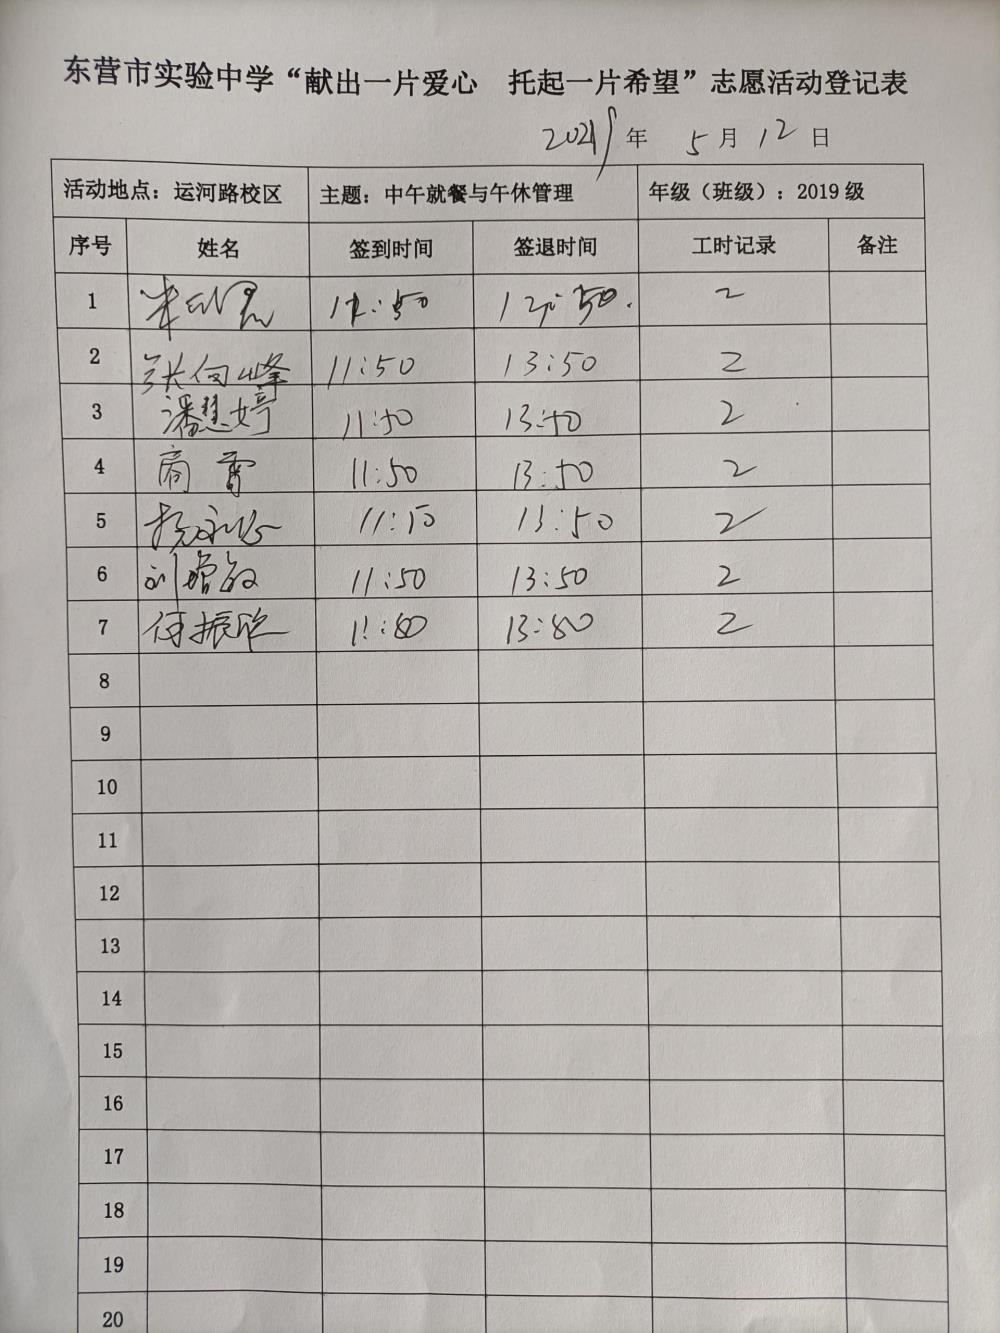 东营市实验中学“献出一片爱心 托起一片希望”志愿活动登记表
2021年 5月 12日
活动地点：运河路校区 主题：中午就餐与午休管理 年级（班级）：2019级
序号 姓名 签到时间 签退时间 工时记录 备注
1 2
2 张向峰 11:50 13:50 2
3 潘慧婷 11:50 13:50 2
4 商雷 11:50 13:50 2
5 11:50 13:50 2
6 刘增敏 11:50 13:50 2
7 何振欣 2
8
9
10
11
12
13
14
15
16
17
18
19
20